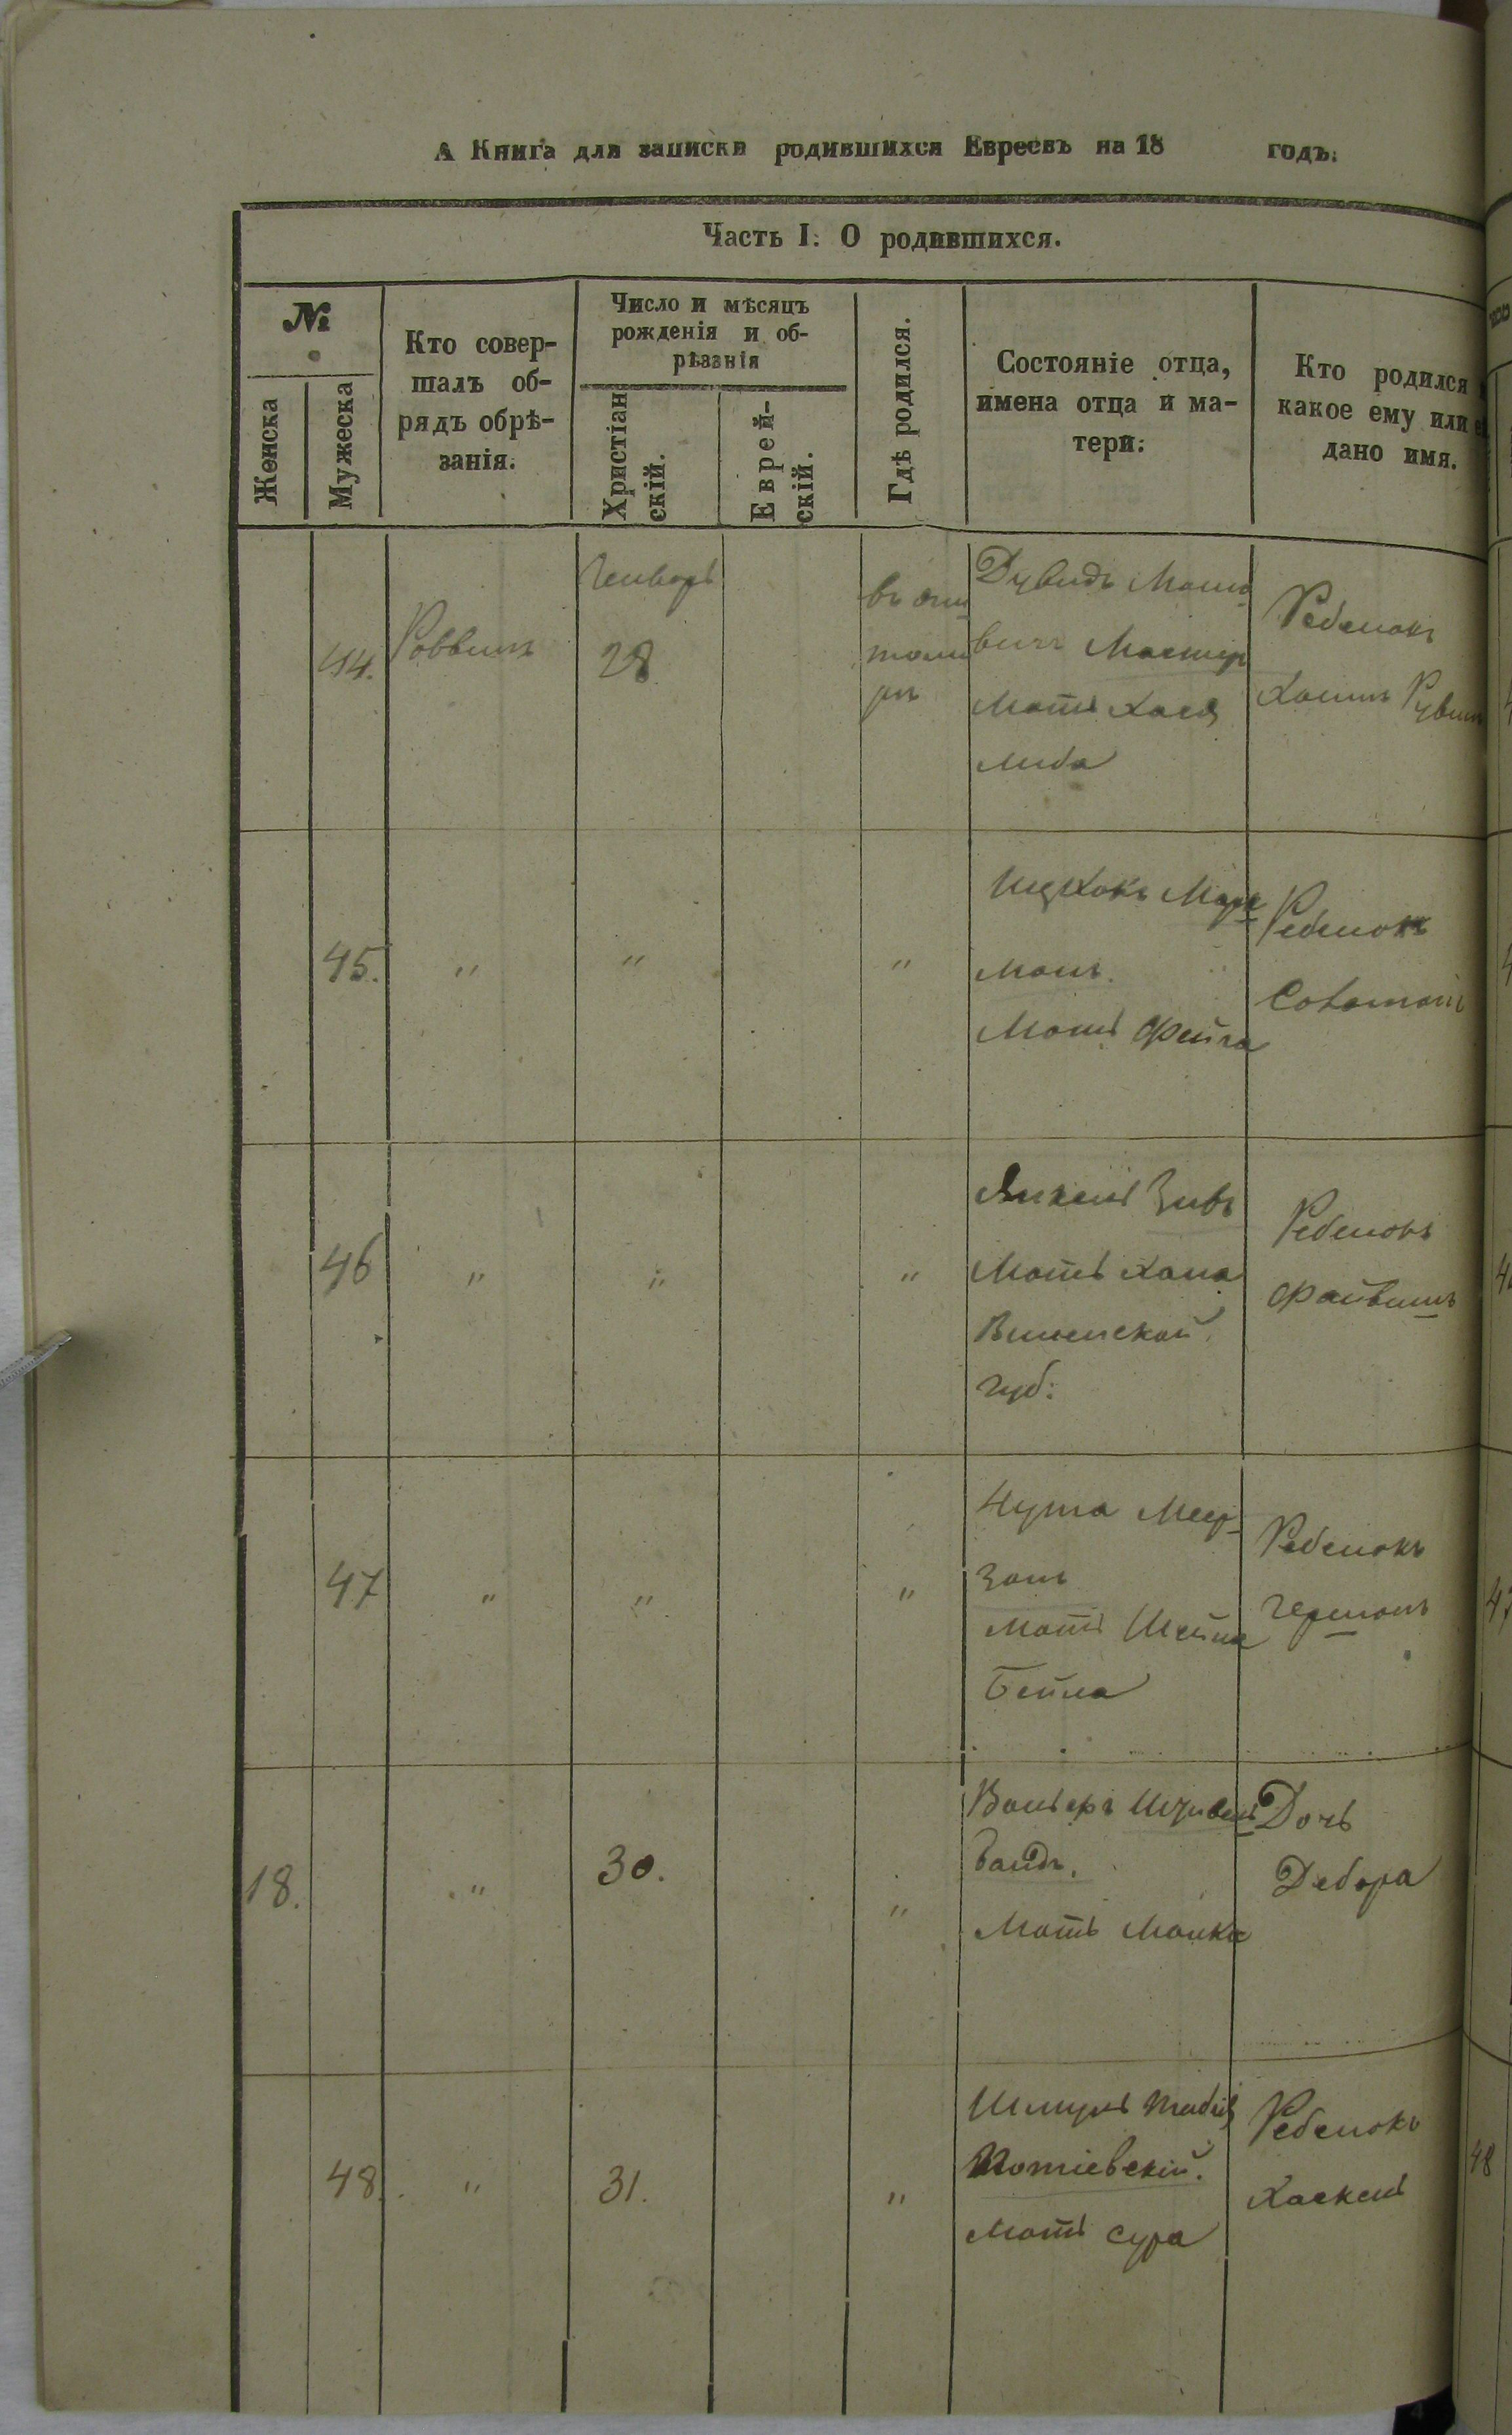 А Книга для записки родившихся Евреевъ на 18 годъ.
Часть I. О родившихся.
№
Женска
Мужеска
Кто совер-
шалъ об-
рядъ обрѣ-
занія.
Число и мѣсяцъ
рожденія и об-
рѣзанія
Христіан
скій.
Еврей-
скій.
Гдѣ родился.
Состояніе отца,
имена отца и ма-
тери.
Кто родился
какое ему или
дано имя.
44.
Роввинъ
Генварь
28
въ жи
томи
рѣ
Дувидъ Мошо
вичъ Мастер
Мать Хася
Либа
Ребенокъ
Хаимъ Рувин
45.
"
"
"
Ицхокъ
Мать Фейга
Ребенокъ
Соломонъ
46
"
"
"
Янкель Зивъ
Мать Хана
Виленской
губ:
Ребенокъ
Файвишъ
47
"
"
"
Нута Меер-
зонъ
Мать Шейна
Бейла
Ребенокъ
Гершонъ
18.
"
30.
"
Вольфъ
бандъ.
Мать Малка
Дочь
Дебора
48.
"
31.
"
Шмуль
Мать Сура
Ребенокъ
Хаскель
48